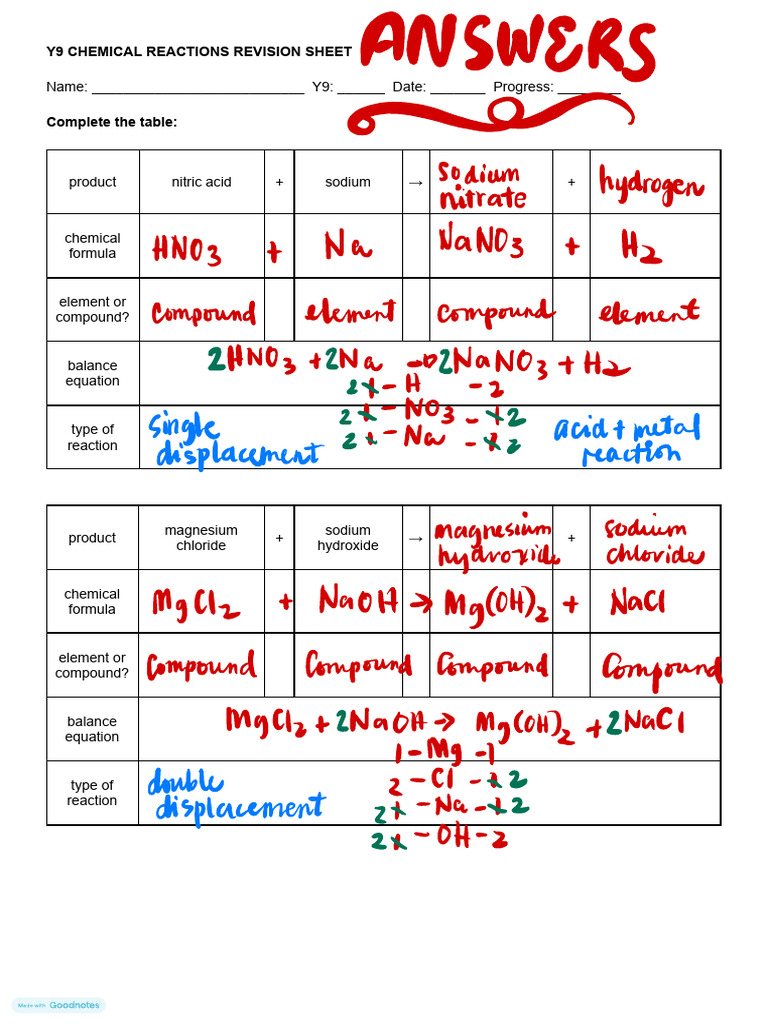 Y9 CHEMICAL REACTIONS REVISION SHEET ANSWERS
Name: ___________________________ Y9: ______ Date: _______ Progress: ________
Complete the table:
product nitric acid + sodium → sodium nitrate + hydrogen
chemical formula HNO3 + Na NaNO3 + H2
element or compound? compound element compound element
balance equation 2HNO3 + 2Na → 2NaNO3 + H2
2 1 - H - 2
2 1 - NO3 - 1 2
2 1 - Na - 1 2
type of reaction single displacement acid + metal reaction
product magnesium chloride + sodium hydroxide → magnesium hydroxide + sodium chloride
chemical formula MgCl2 + NaOH → Mg(OH)2 + NaCl
element or compound? Compound Compound Compound Compound
balance equation MgCl2 + 2NaOH → Mg(OH)2 + 2NaCl
1 - Mg - 1
2 - Cl - 1 2
2 1 - Na - 1 2
2 1 - OH - 2
type of reaction double displacement
Made with Goodnotes